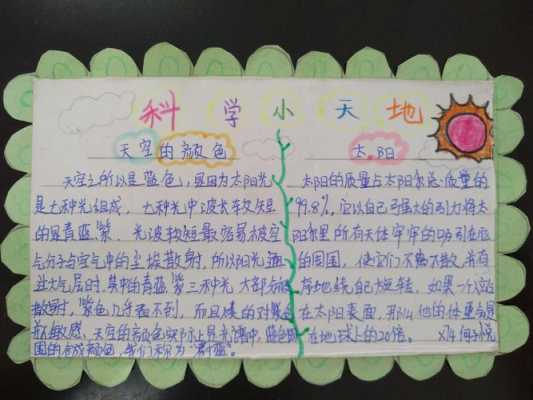 科学小天地
天空的颜色
天空之所以是蓝色,是因为太阳光
是七种光组成,七种光中波长较短
的是青蓝紫,光波较短最容易被空
气分子与空气中的尘埃散射,所以阳光通
过大气层时,其中的青蓝紫三种光大部分被
散射,紫色几乎看不到,而且人的对紫色
敏感,天空的颜色实际上是光谱中蓝色
围的合成颜色,我们称为"蔚蓝"。
太阳
太阳的质量占太阳系总质量的
99.8%,它以自己强大的引力将太
阳系里所有天体牢牢的吸引在
的周围,使它们不离不散,井有
有序地绕自己旋转。如果一个人站
在太阳表面,那么他的体重会是
在地球上的20倍。